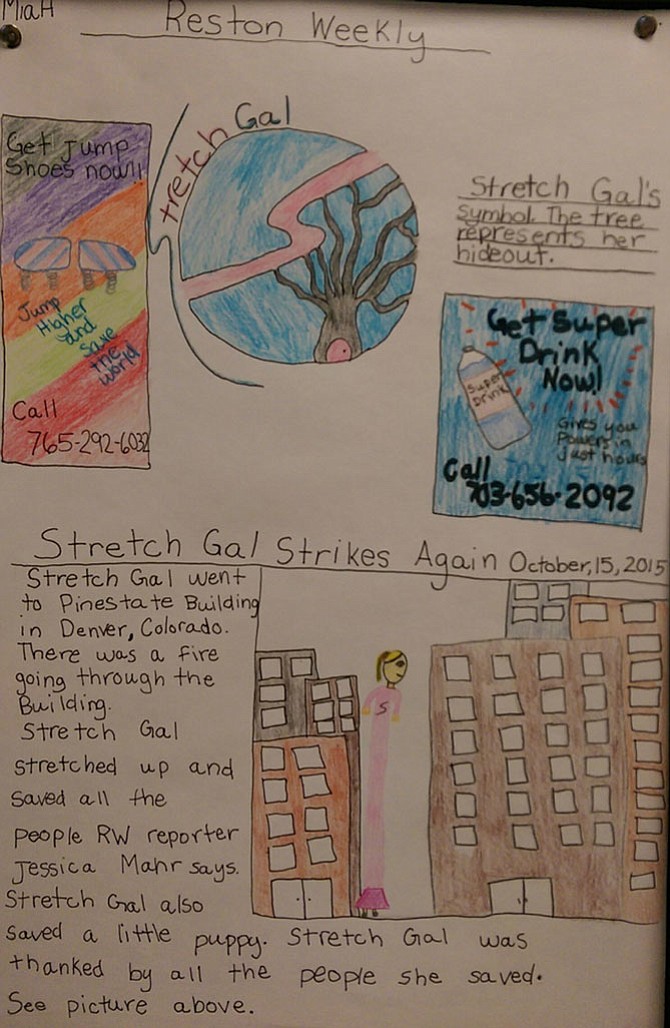 Mia H
Reston Weekly
Get Jump
Shoes now!!
Jump
Higher
and
Save
the
World
Call
765-292-6032
Stretch Gal
Stretch Gal's
symbol. The tree
represents her
hideout.
Get Super
Drink
Now!
Super
Drink
Gives you
Powers in
Just hours
Call
703-656-2092
Stretch Gal Strikes Again October, 15, 2015
Stretch Gal went
to Pinestate Building
in Denver, Colorado.
There was a fire
going through the
Building.
Stretch Gal
stretched up and
saved all the
people RW reporter
Jessica Mahr says.
Stretch Gal also
saved a little puppy. Stretch Gal was
thanked by all the people she saved.
See picture above.
S